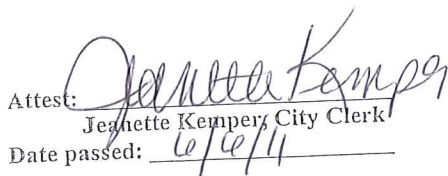 Attest: Jeanette Kemper
Jeanette Kemper, City Clerk
Date passed: 6/6/11